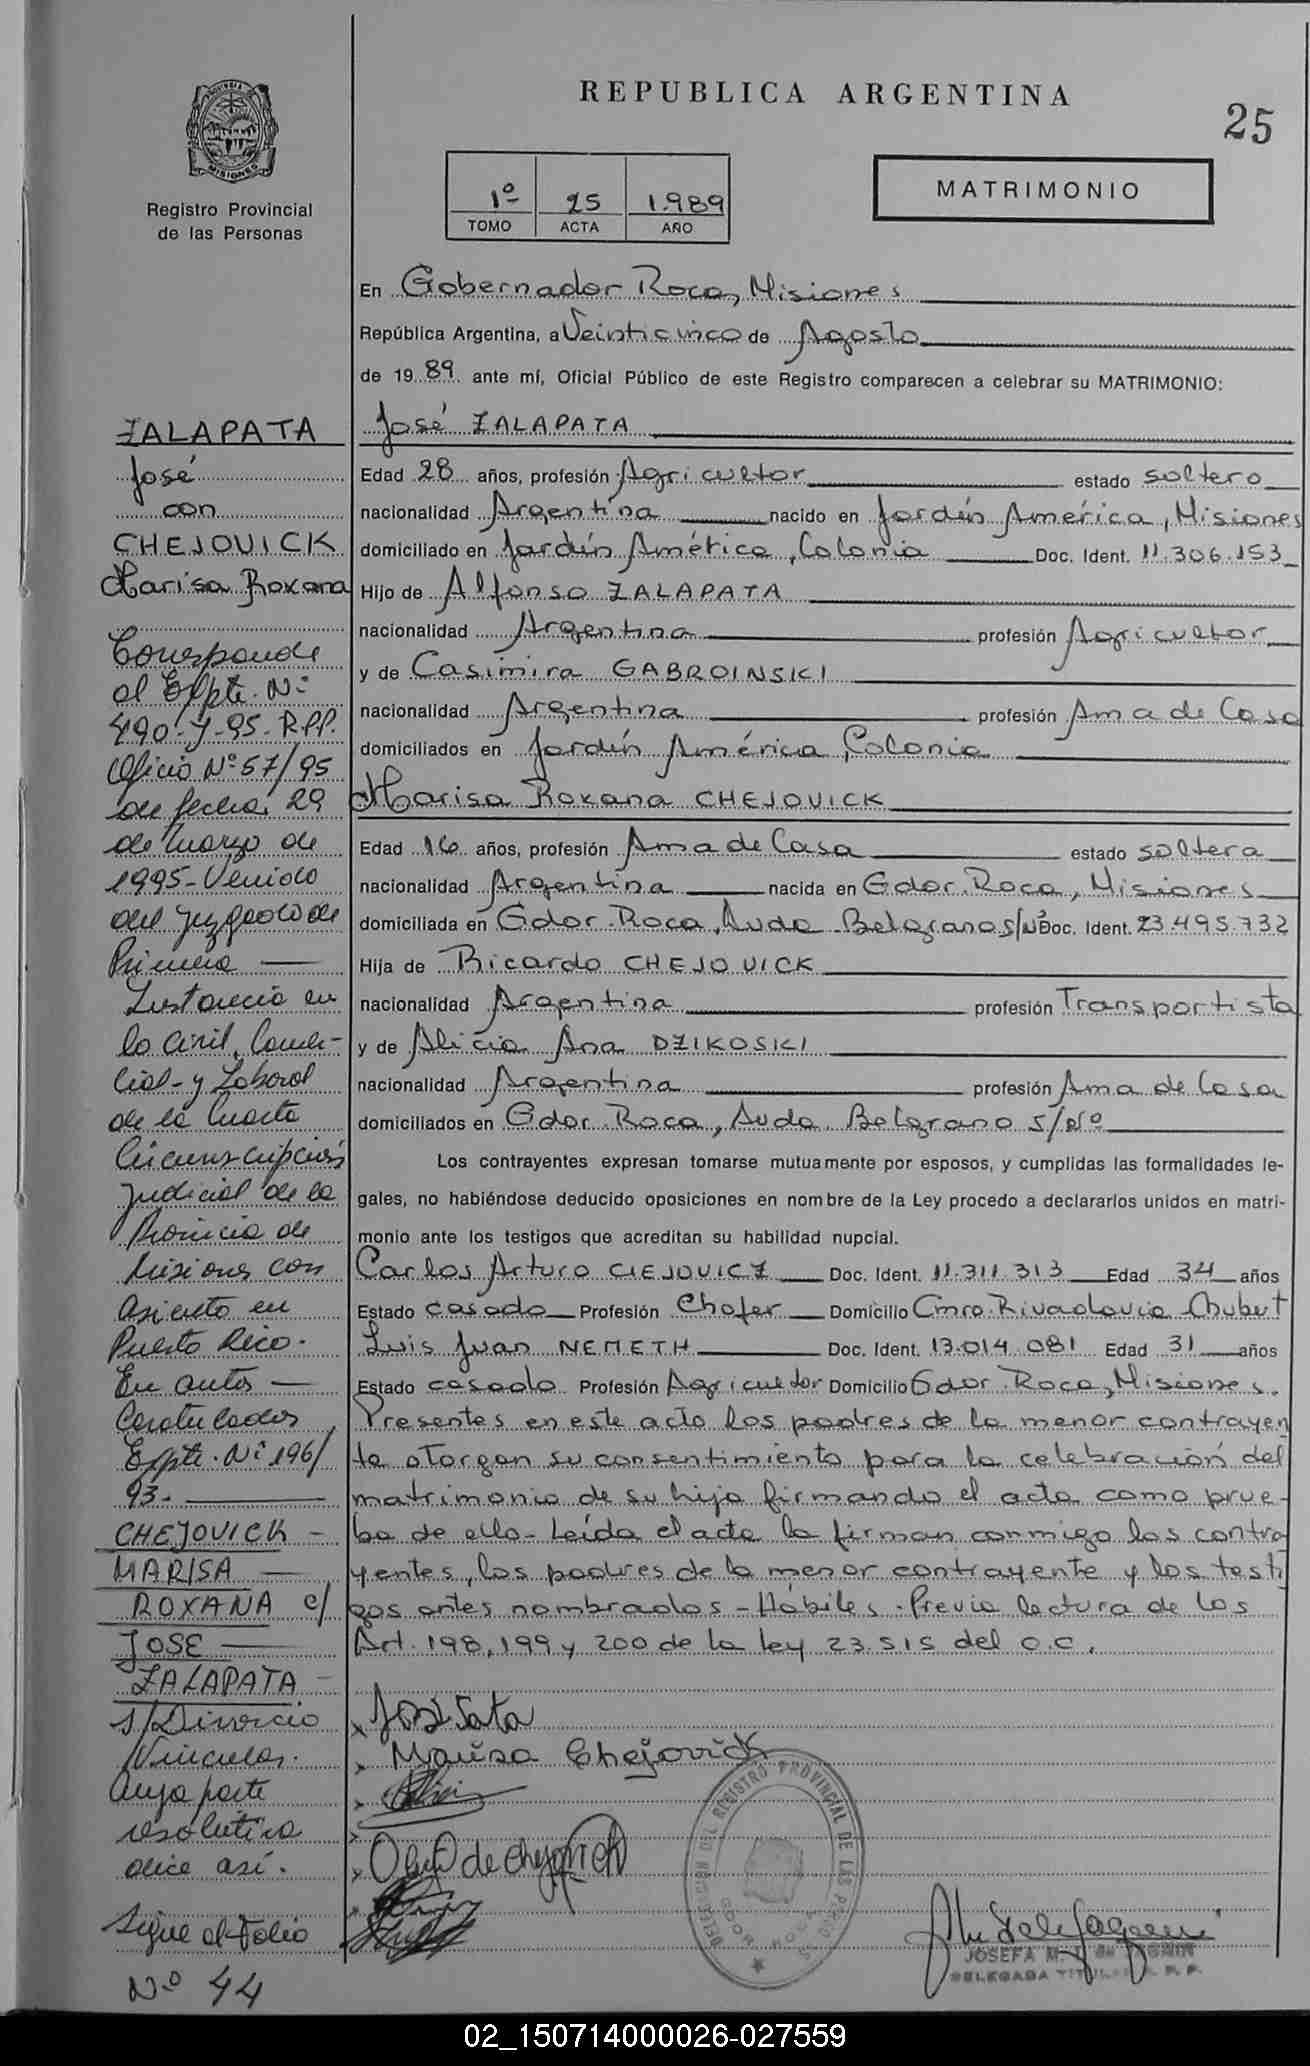 REPUBLICA ARGENTINA
25
MISIONES
Registro Provincial
de las Personas
1º 25 1.989
TOMO ACTA AÑO
MATRIMONIO
En Gobernador Roca, Misiones
República Argentina, a Veinticinco de Agosto
de 19 89 ante mí, Oficial Público de este Registro comparecen a celebrar su MATRIMONIO:
José ZALAPATA
Edad 28 años, profesión Agricultor estado soltero
nacionalidad Argentina nacido en Jardín América, Misiones
domiciliado en Jardín América, Colonia Doc. Ident. 11.306.153
Hijo de Alfonso ZALAPATA
nacionalidad Argentina profesión Agricultor
y de Casimira GABROINSKI
nacionalidad Argentina profesión Ama de Casa
domiciliados en Jardín América, Colonia
Marisa Roxana CHEJOVICK
Edad 16 años, profesión Ama de Casa estado soltera
nacionalidad Argentina nacida en Gdor. Roca, Misiones
domiciliada en Gdor. Roca, Avda Belgrano S/Nº Doc. Ident. 23.495.732
Hija de Ricardo CHEJOVICK
nacionalidad Argentina profesión Transportista
y de Alicia Ana DZIKOSKI
nacionalidad Argentina profesión Ama de Casa
domiciliados en Gdor. Roca, Avda. Belgrano S/Nº
Los contrayentes expresan tomarse mutuamente por esposos, y cumplidas las formalidades le-
gales, no habiéndose deducido oposiciones en nombre de la Ley procedo a declararlos unidos en matri-
monio ante los testigos que acreditan su habilidad nupcial.
Carlos Arturo CIEJOVICZ Doc. Ident. 11.311.313 Edad 34 años
Estado casado Profesión Chofer Domicilio Cmro. Rivadavia Chubut
Luis Juan NEMETH Doc. Ident. 13.014.081 Edad 31 años
Estado casado Profesión Agricultor Domicilio Gdor. Roca, Misiones.
Presentes en este acto los padres de la menor contrayen
te otorgan su consentimiento para la celebración del
matrimonio de su hija firmando el acta como prue-
ba de ello - Leída el acta la firman conmigo los contra
yentes, los padres de la menor contrayente y los testi
gos antes nombrados - Hábiles. Previa lectura de los
Art. 198, 199 y 200 de la ley 23.515 del C.C.
Marisa Chejovick
de Chejovick
DELEGACION DEL REGISTRO PROVINCIAL DE LAS
JOSEFA M.
DELEGADA TITULAR R. P. P.
ZALAPATA
José
con
CHEJOVICK
Marisa Roxana
Corresponde
al Expte. Nº
490-Y-95-R.P.P.
Oficio Nº 57/95
de fecha 29
de Marzo de
1995 - Venido
del Juzgado de
Primera
Instancia en
lo Civil, Comer-
cial - y Laboral
de la Cuarta
Circunscripción
Judicial de la
Provincia de
Misiones con
asiento en
Puerto Rico.
En autos
Caratulados
Expte. Nº 196/
93.
CHEJOVICK -
MARISA
ROXANA c/
JOSE
ZALAPATA -
s/Divorcio
Vincular.
Cuya parte
resolutiva
dice así.
Sigue al Folio
Nº 44
02_150714000026-027559